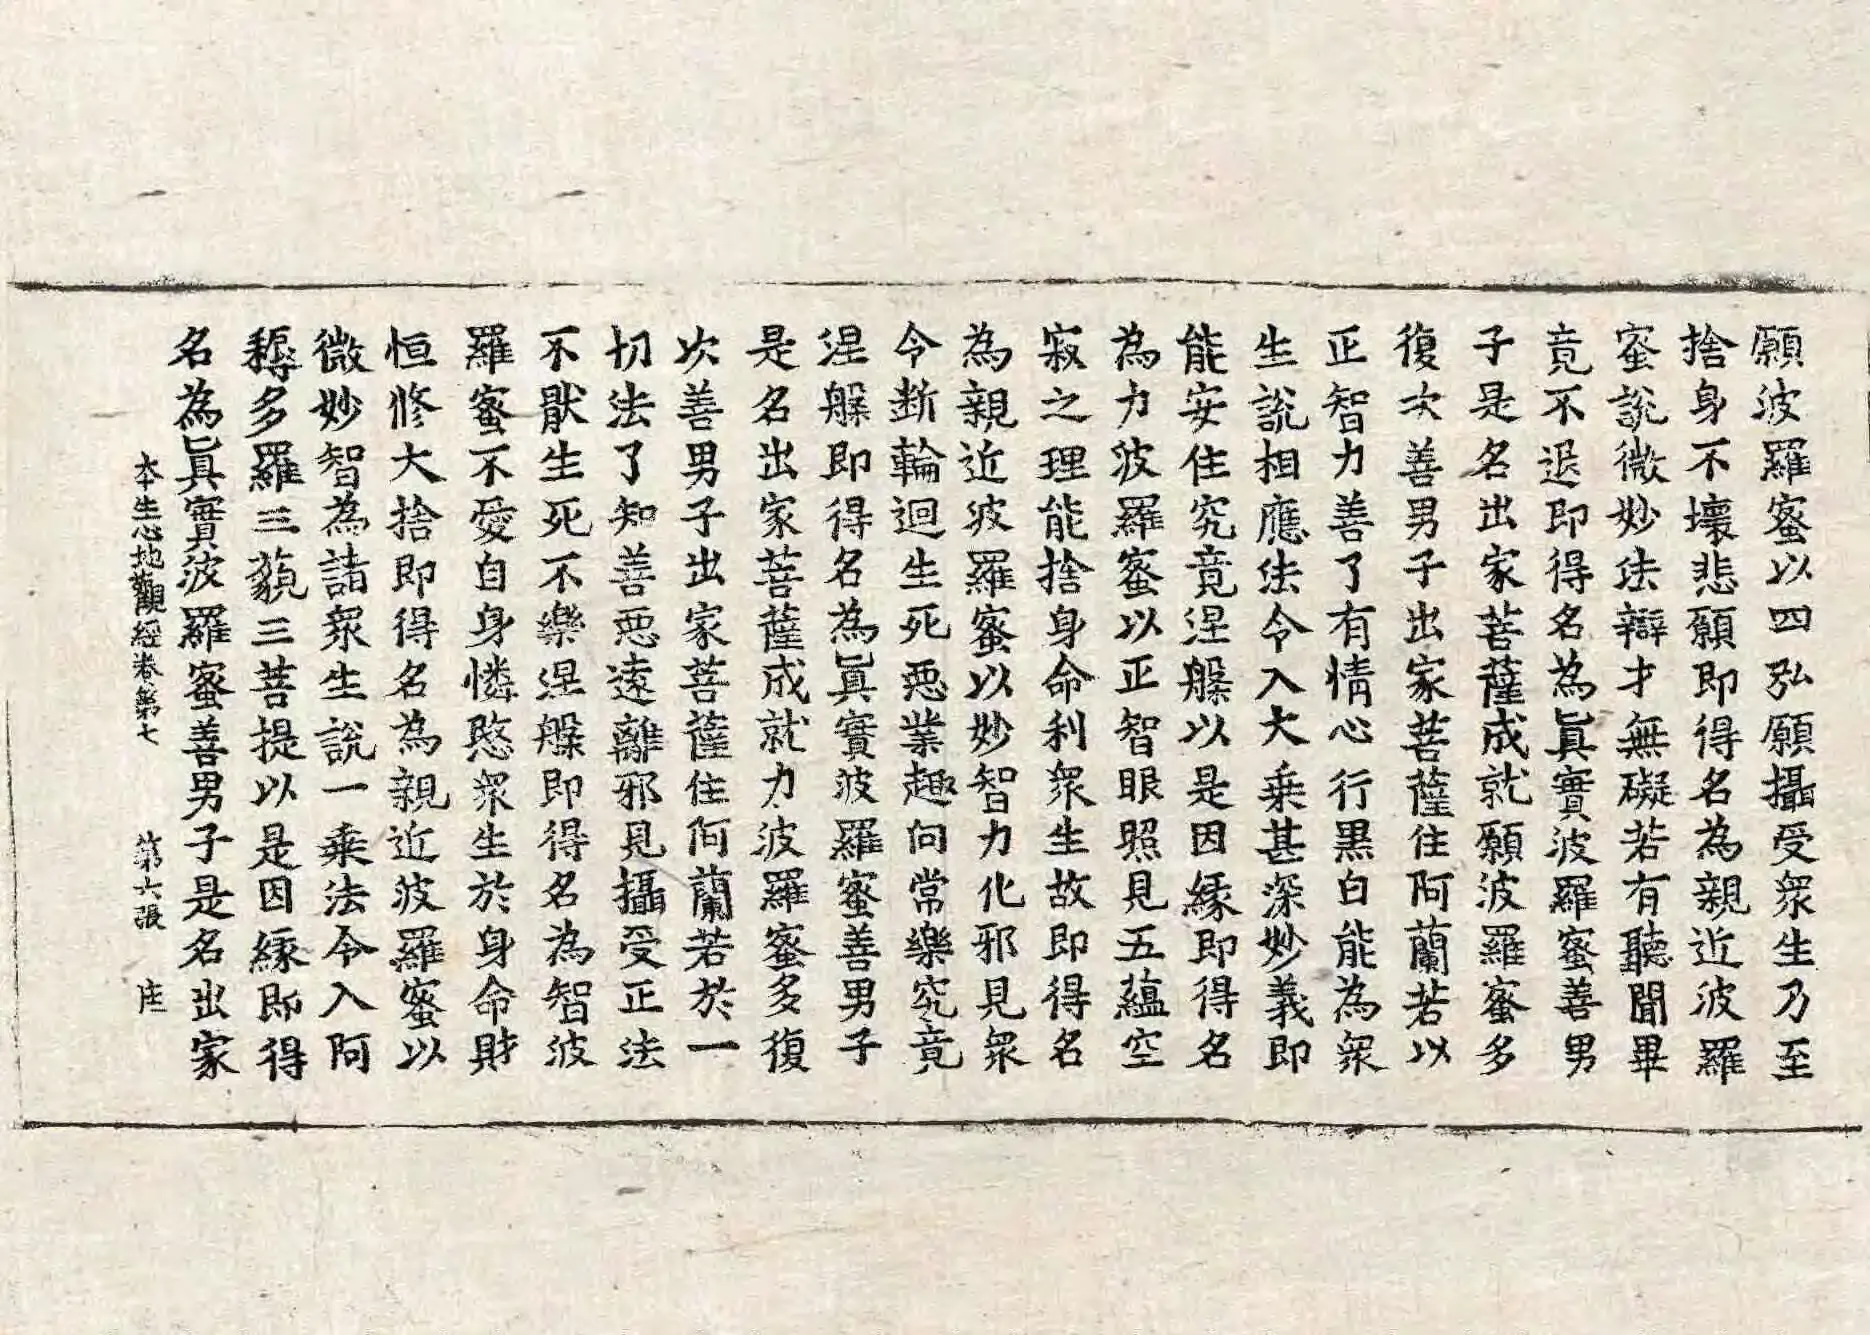 願波羅蜜以四弘願攝受衆生乃至
捨身不壞悲願即得名為親近波羅
蜜說微妙法辯才無礙若有聽聞畢
竟不退即得名為眞實波羅蜜善男
子是名出家菩薩成就願波羅蜜多
復次善男子出家菩薩住阿蘭若以
正智力善了有情心行黑白能為衆
生說相應法令入大乘甚深妙義即
能安住究竟涅槃以是因緣即得名
為力波羅蜜以正智眼照見五蘊空
寂之理能捨身命利衆生故即得名
為親近波羅蜜以妙智力化邪見衆
令断輪迴生死惡業趣向常樂究竟
涅槃即得名為眞實波羅蜜善男子
是名出家菩薩成就力波羅蜜多復
次善男子出家菩薩住阿蘭若於一
切法了知善惡遠離邪見攝受正法
不猒生死不樂涅槃即得名為智波
羅蜜不愛自身憐愍衆生於身命財
恒修大捨即得名為親近波羅蜜以
微妙智為諸衆生說一乘法令入阿
耨多羅三藐三菩提以是因緣即得
名為眞實波羅蜜善男子是名出家
本生心地觀經卷第七 第六張